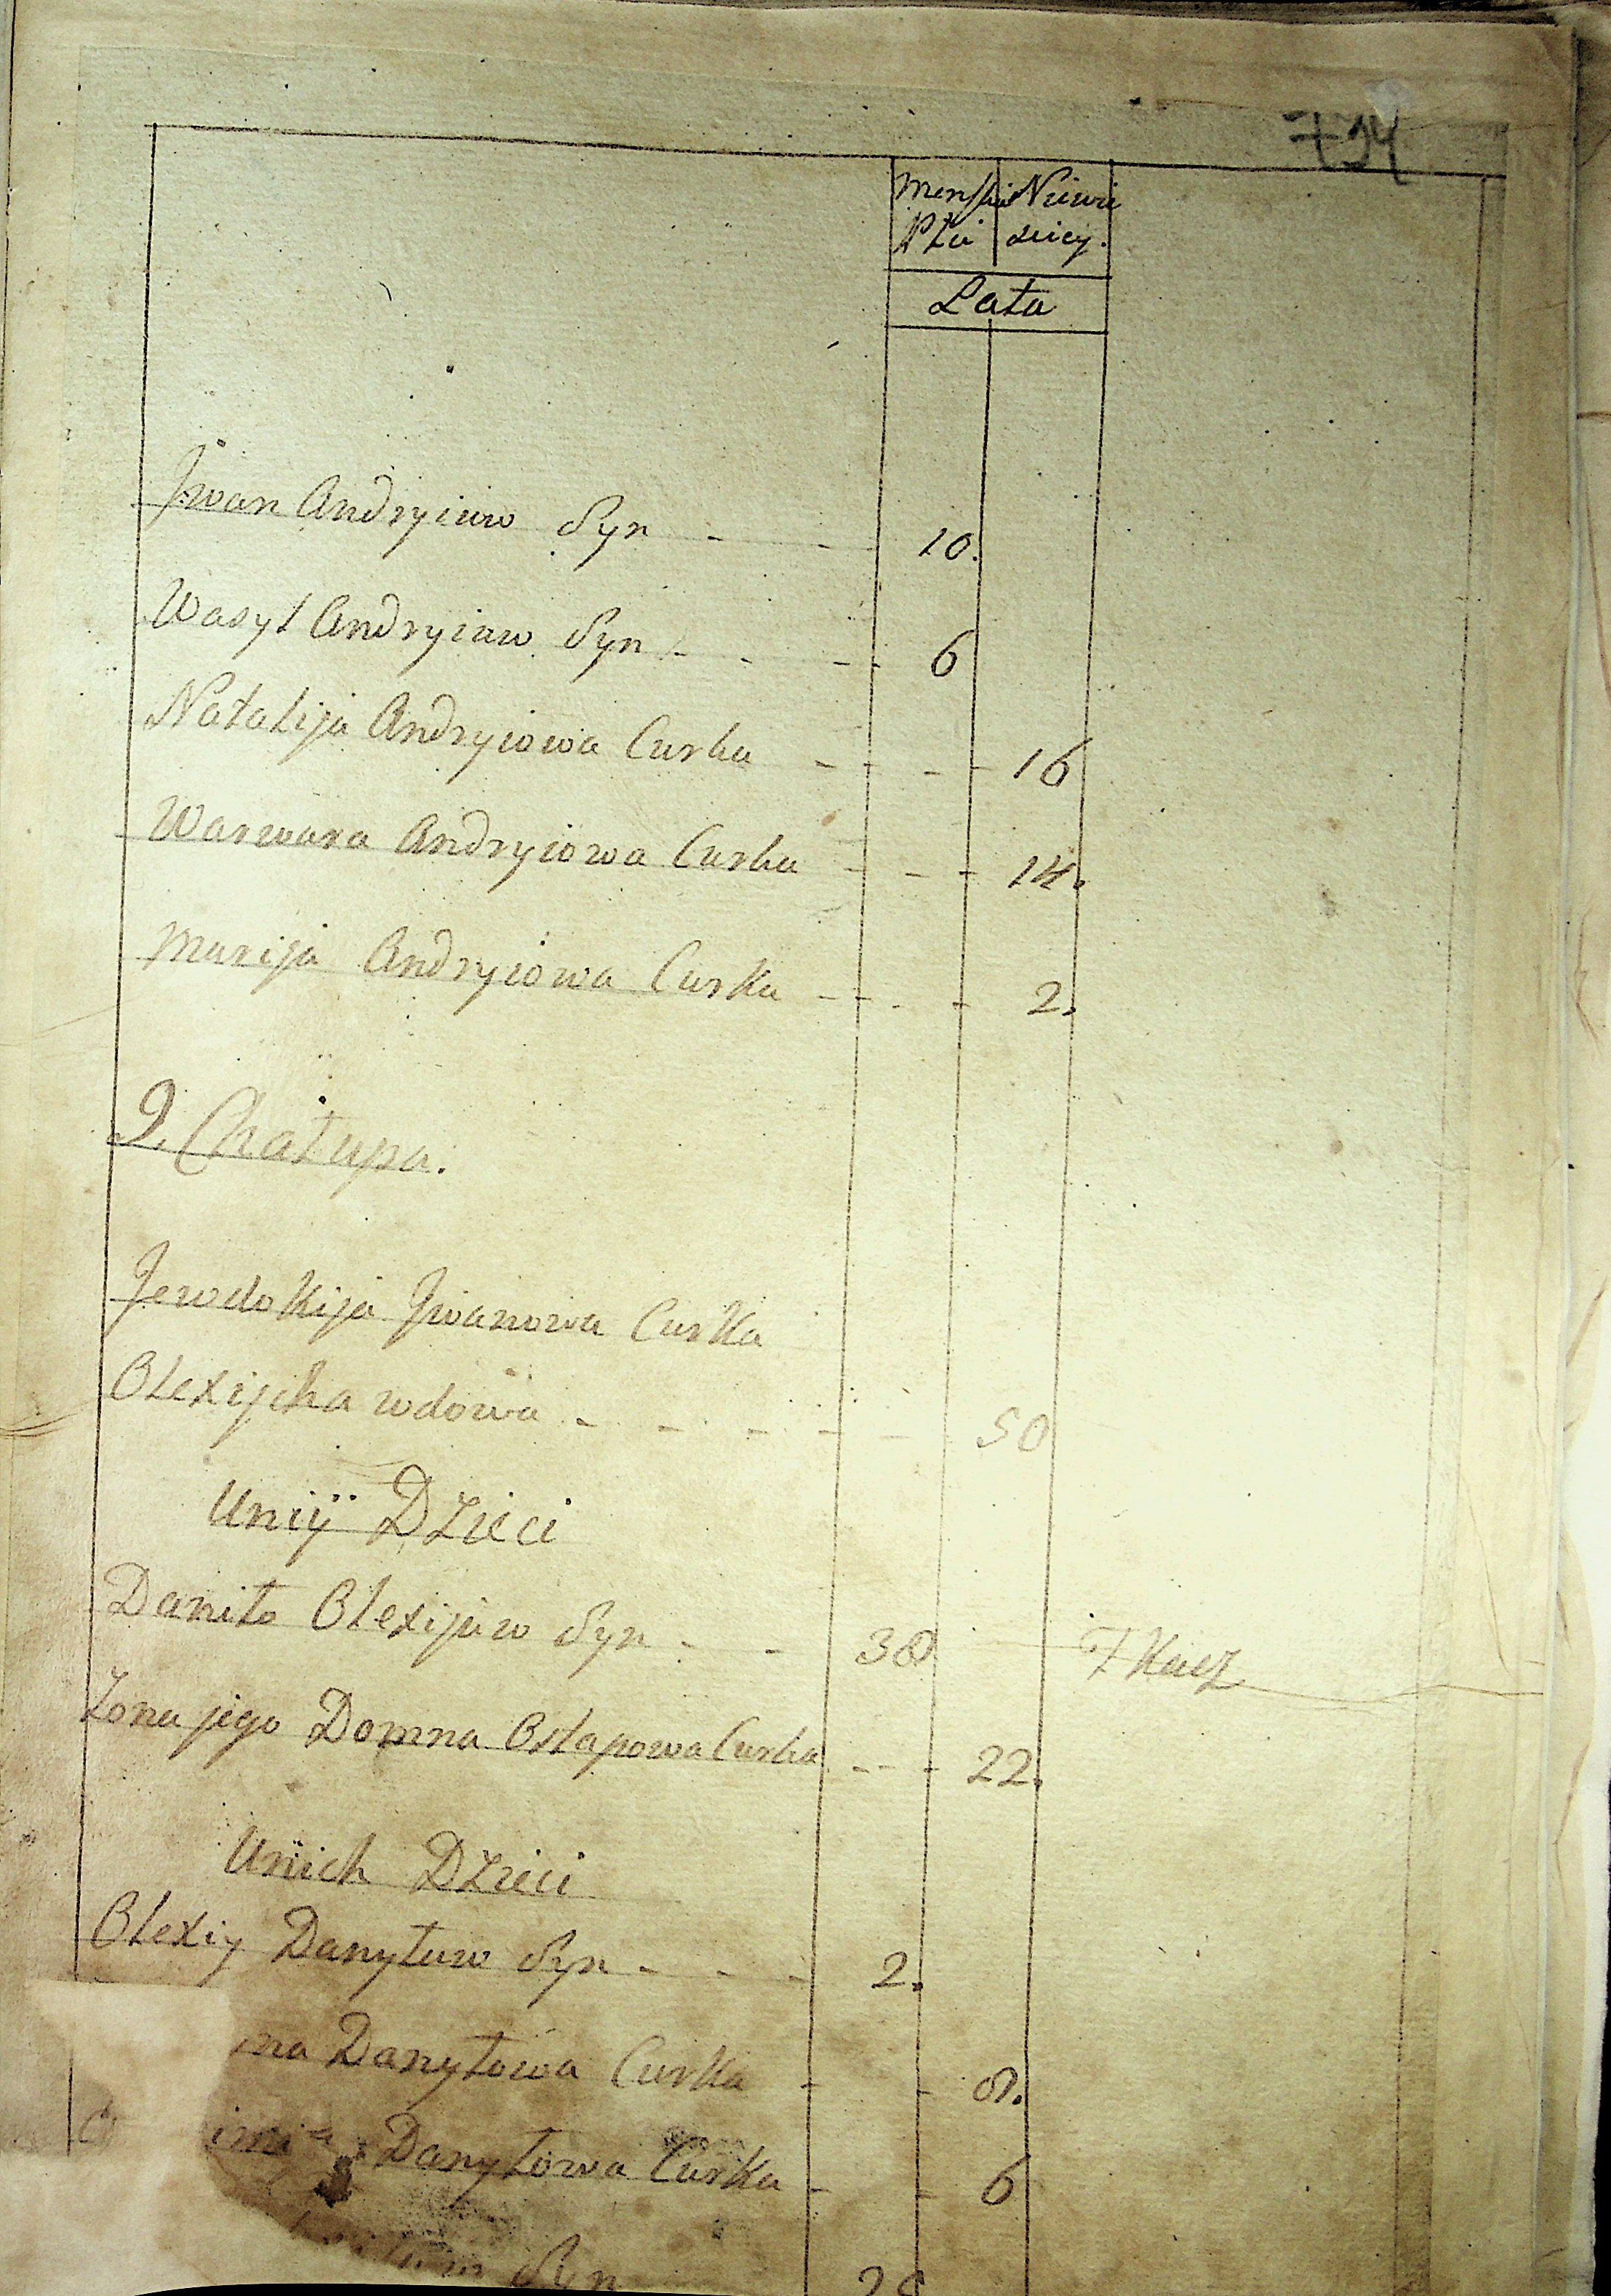 714
Menskie Niewie
Płci sciey.
Lata
Jwan Andryiuw Syn - - 10.
Wasyl Andryiuw Syn - - - 6
Natalija Andryiowa Curka - - - 16
Warwara Andryiowa Curka - - - 14.
Marija Andryiowa Curka - - - 2.
9. Chałupa.
Jewdokija Jwanowa Curka
Olexijcha wdowa - - - - - 50
Uniÿ Dzieci
Daniło Olexijuw Syn - - 38 Tkacz
Zona jego Domna Ostapowa Curka - - - 22.
Unich Dzieci
Olexiy Danyłuw Syn - - - 2.
na Danyłowa Curka - - 8.
Danyłowa Curka - - 6
Syn